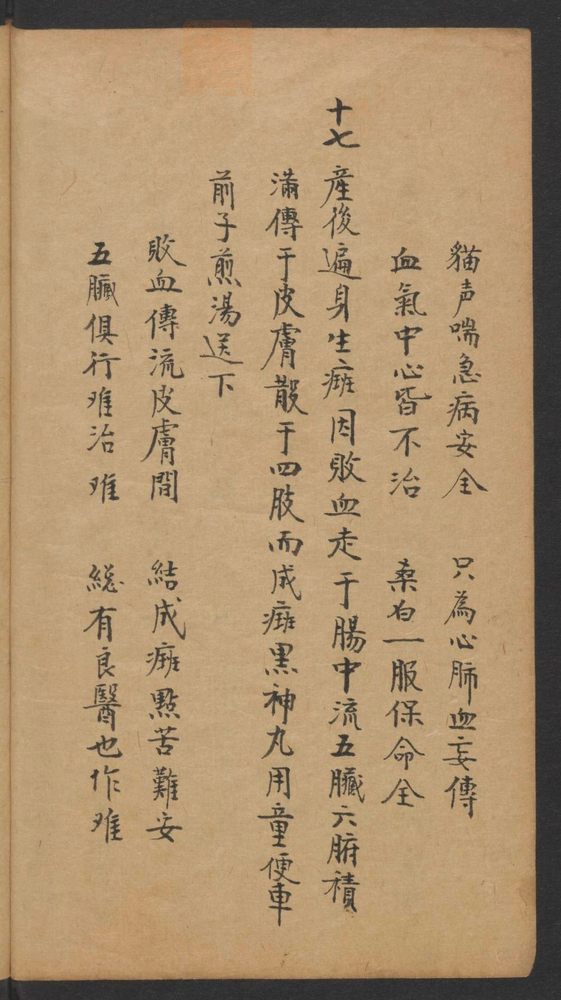 貓声喘急病安全　只為心肺血妄傳
血氣中心皆不治　桑白一服保命全
十七　產後遍身生癍因敗血走于腸中流五臟六腑積
滿傳于皮膚散于四肢而成癍黑神丸用童便車
前子煎湯送下
敗血傳流皮膚間　結成癍點苦難安
五臟俱行难治难　縂有良醫也作难